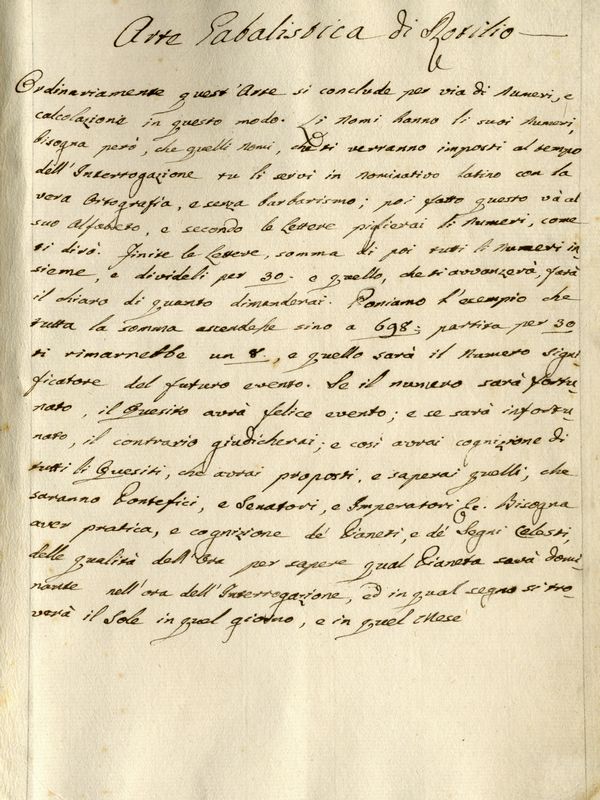 Arte Cabalistica di Rotilio
Ordinariamente quest'Arte si conclude per via di Numeri, e
calcolazione in questo modo. Li Nomi hanno li suoi Numeri,
bisogna però, che quelli Nomi, che ti verranno imposti al tempo
dell'Interrogazione tu li servi in nominativo latino con la
vera Ortografia, e senza barbarismo; poi fatto questo và al
suo Alfabeto, e secondo le Lettere piglierai li Numeri, come
ti dirò. Finite le Lettere, somma di poi tutti li Numeri in-
sieme, e divideli per 30. e quello, che ti avvanzerà, farà
il chiaro di quanto dimanderai. Poniamo l'esempio che
tutta la somma ascendesse sino a 698; partita per 30
ti rimarrebbe un 8., e quello sarà il Numero signi
ficatore del futuro evento. Se il numero sarà fortu-
nato, il Quesito avrà felice evento; e se sarà infortu-
nato, il contrario giudicherai; e così avrai cognizione di
tutti li Quesiti, che avrai proposti, e saperai quelli, che
saranno Pontefici, e Senatori, e Imperatori &c. Bisogna
aver pratica, e cognizione de' Pianeti, e de' Segni Celesti,
delle qualità dell'Ora per sapere qual Pianeta sarà domi-
nante nell'ora dell'Interrogazione, ed in qual segno si tro-
verà il Sole in quel giorno, e in quel Mese